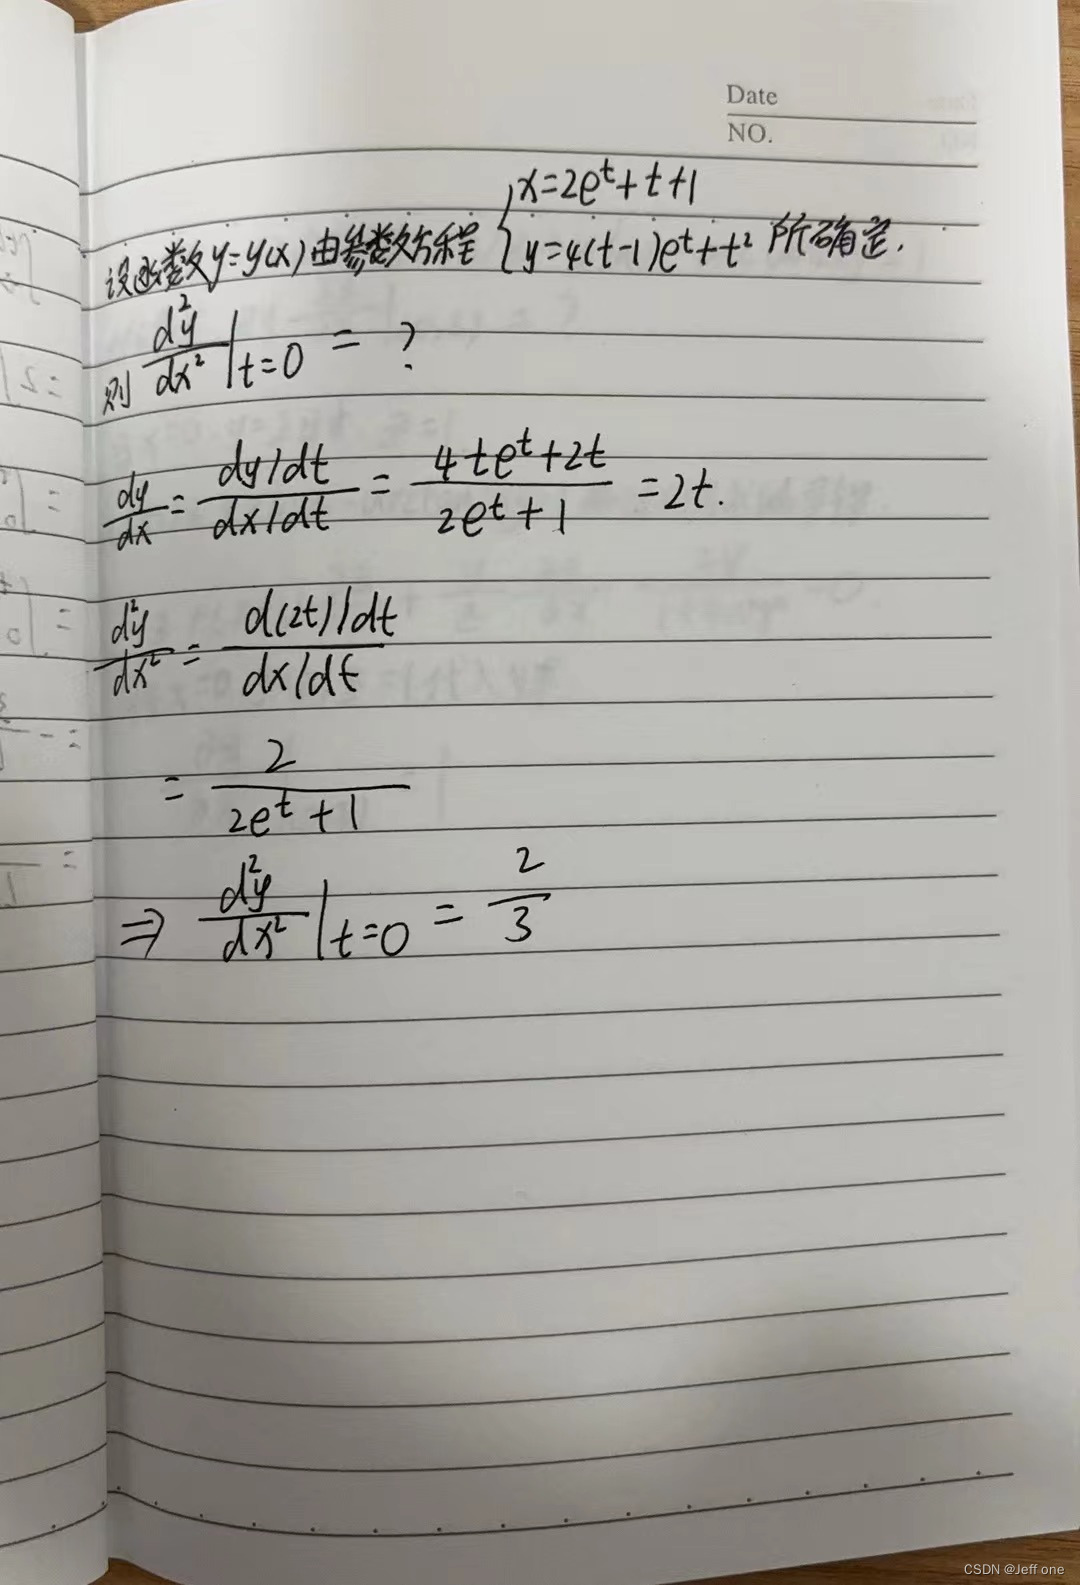 Date
NO.
设函数y=y(x)由参数方程 { x=2e^t+t+1
y=4(t-1)e^t+t² 所确定.
则 d²y/dx² |t=0 = ?
dy/dx = (dy/dt)/(dx/dt) = (4te^t+2t)/(2e^t+1) = 2t.
d²y/dx² = (d(2t)/dt)/(dx/dt)
= 2/(2e^t+1)
⇒ d²y/dx² |t=0 = 2/3
CSDN @Jeff one